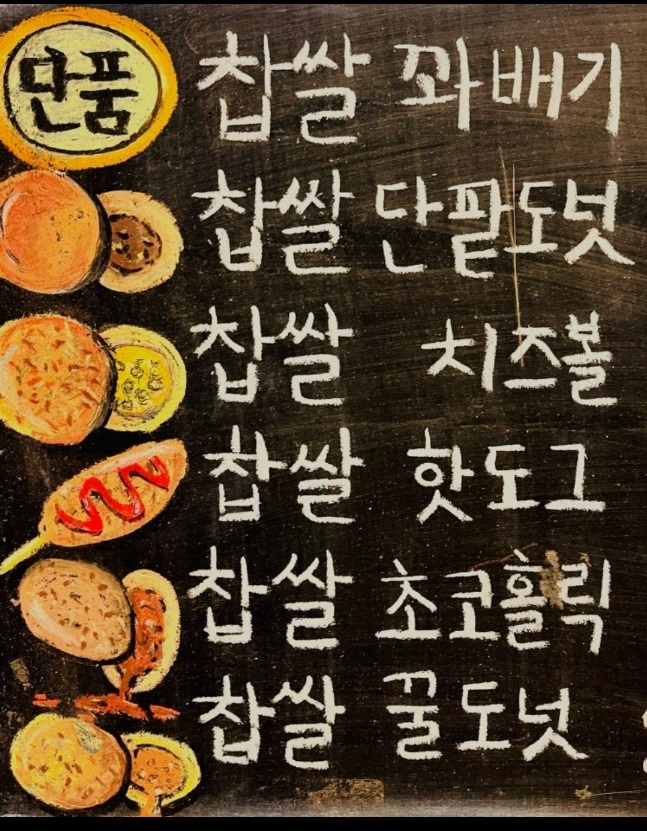 단품
찹쌀 꽈배기
찹쌀 단팥도넛
찹쌀 치즈볼
찹쌀 핫도그
찹쌀 초코홀릭
찹쌀 꿀도넛